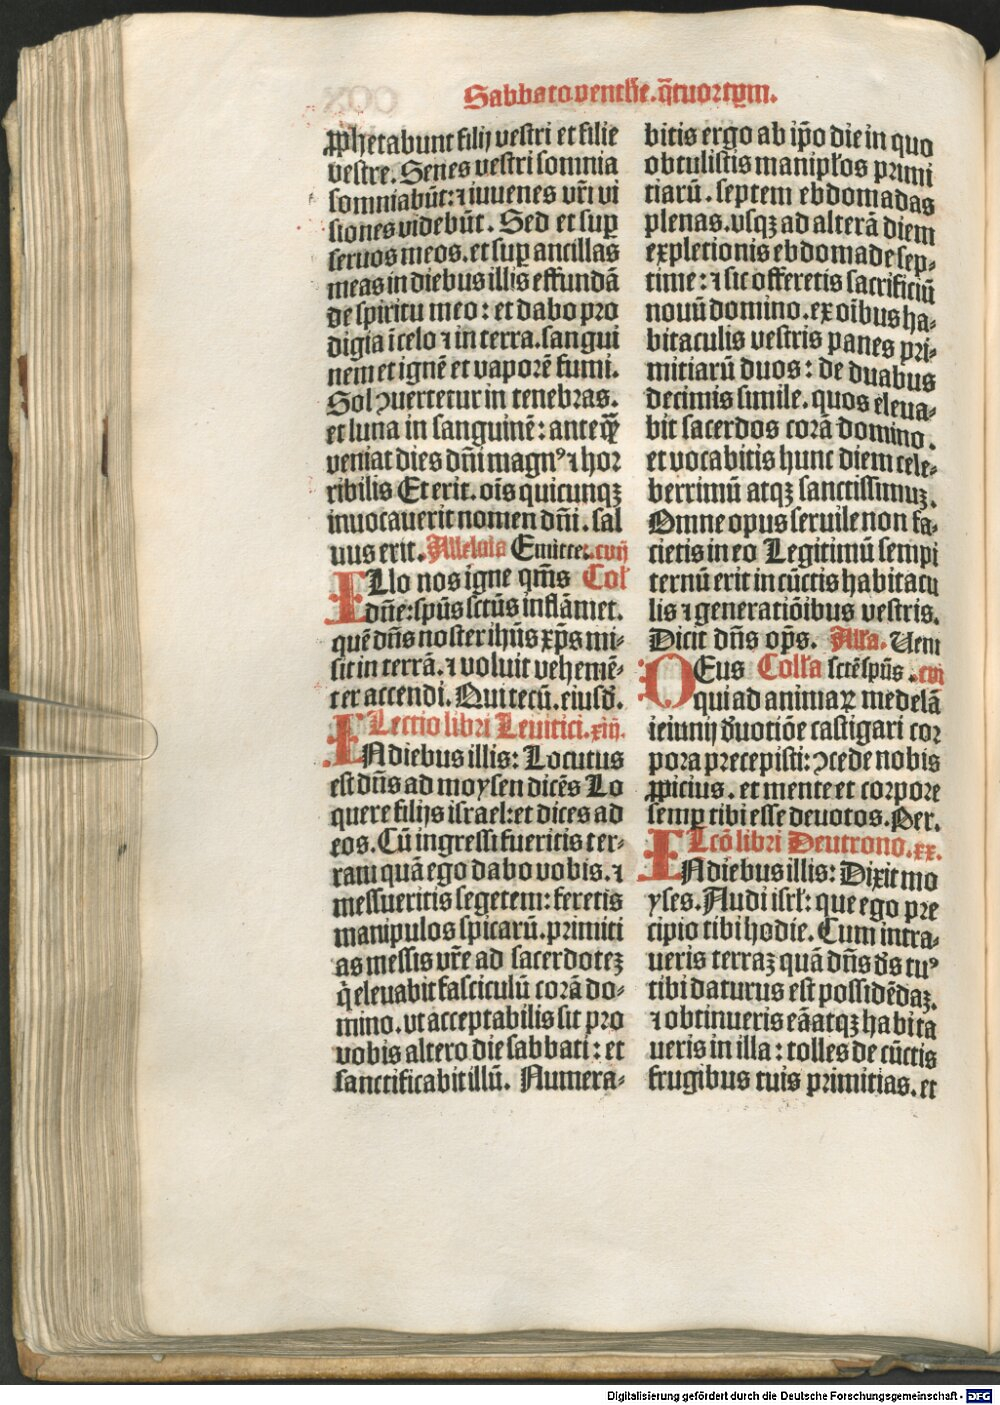 Sabbato penthe. q̃tuortẽm.
ꝓphetabunt filij vestri et filie
vestre. Senes vestri somnia
somniabũt: ⁊ iuuenes vr̃i vi
siones videbũt. Sed et suꝑ
seruos meos. et suꝑ ancillas
meas in diebus illis effundã
de spiritu meo: et dabo pro
digia ĩ celo ⁊ in terra. sangui
nem et ignẽ et vaporẽ fumi.
Sol ɔuertetur in tenebras.
et luna in sanguinẽ: anteq̃ꝫ
veniat dies dñi magnꝰ ⁊ hor
ribilis Et erit. oĩs quicunqꝫ
inuocauerit nomen dñi. sal
uus erit. Alleluia Emitte. .cvij
ILlo nos igne qm̃s Col̃
dñe: spũs sctũs inflãmet.
quẽ dñs noster ihũs xp̃s mi⸗
sit in terrã. ⁊ voluit vehemẽ⸗
ter accendi. Qui tecũ. eiusd̃.
Lectio libri Leuitici. xiij.
INdiebus illis: Locutus
est dñs ad moysen dicẽs Lo
quere filijs israel: et dices ad
eos. Cũ ingressi fueritis ter⸗
ram quã ego dabo vobis. ⁊
messueritis segetem: feretis
manipulos spicarũ. primiti
as messis vr̃e ad sacerdoteꝫ
q̃ eleuabit fasciculũ corã do⸗
mino. vt acceptabilis sit pro
vobis altero die sabbati: et
sanctificabit illũ. Numera⸗
bitis ergo ab ip̃o die in quo
obtulistis manipl̃os primi
tiarũ. septem ebdomadas
plenas. vsqꝫ ad alterã diem
expletionis ebdomade sep⸗
time: ⁊ sic offeretis sacrificiũ
nouũ domino. ex oĩbus ha⸗
bitaculis vestris panes pri⸗
mitiarũ duos: de duabus
decimis simile. quos eleua⸗
bit sacerdos corã domino.
et vocabitis hunc diem cele⸗
berrimũ atqꝫ sanctissimuꝫ.
Omne opus seruile non fa⸗
cietis in eo Legitimũ sempi
ternũ erit in cũctis habitacu
lis ⁊ generatiõibus vestris.
Dicit dñs op̃s. All̃a. Ueni
DEus Coll̃a sctẽspũs .cvi
qui ad animaꝝ medelã
ieiunij d̃uotiõe castigari cor
pora precepisti: ɔcede nobis
ꝓpicius. et mente et corpore
semꝑ tibi esse deuotos. Per.
Lcõ libri Deutrono. xx.
INdiebus illis: Dixit mo
yses. Audi isrl̃: que ego pre
cipio tibi hodie. Cum intra⸗
ueris terraꝫ quã dñs d̃s tuꝰ
tibi daturus est possidẽdaꝫ.
⁊ obtinueris eã atqꝫ habita
ueris in illa: tolles de cũctis
frugibus tuis primitias. et
Digitalisierung gefördert durch die Deutsche Forschungsgemeinschaft - DFG